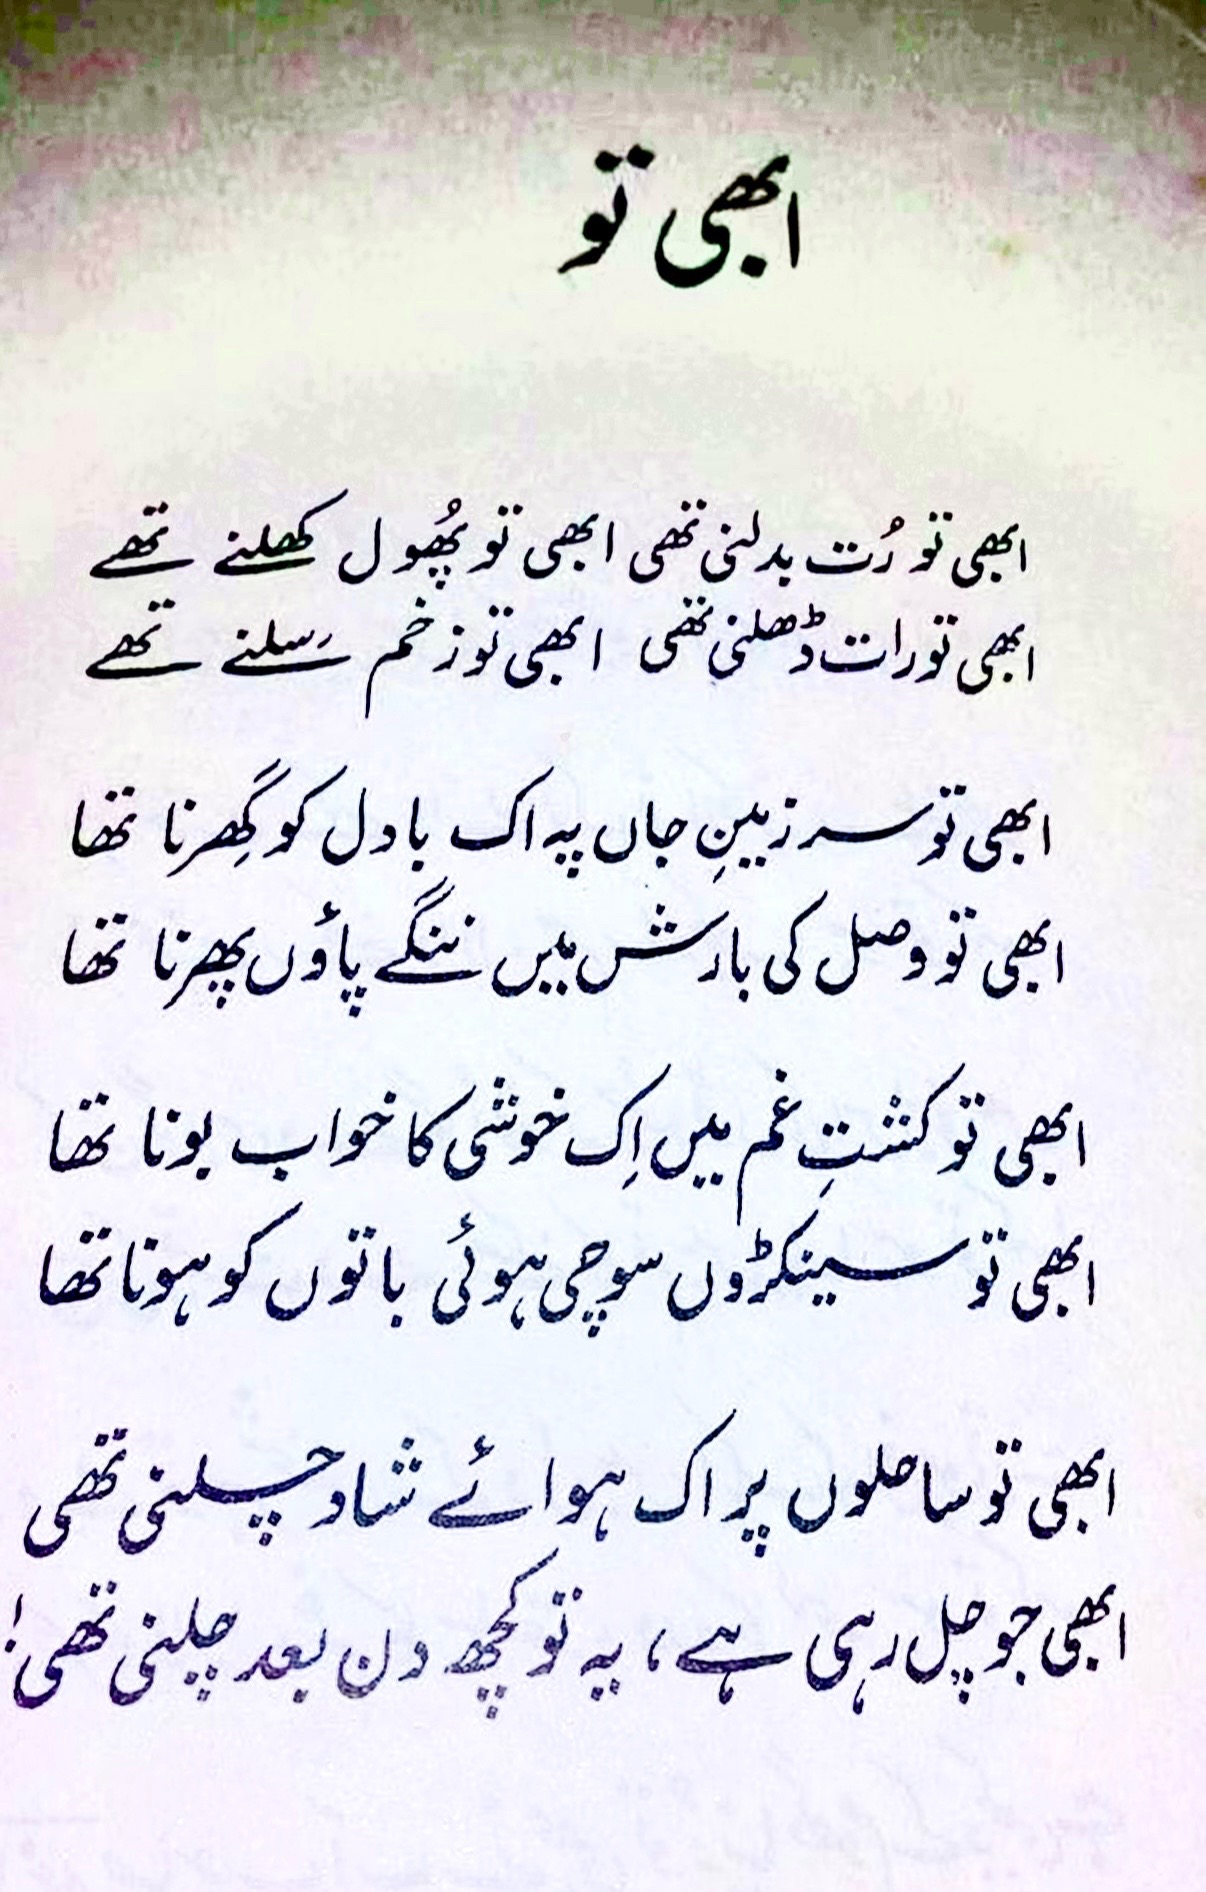 ابھی تو
ابھی تو رُت بدلنی تھی ابھی تو پُھول کھلنے تھے
ابھی تو رات ڈھلنی تھی ابھی تو زخم سلنے تھے
ابھی تو سرزمینِ جاں پہ اک بادل کو گِھرنا تھا
ابھی تو وصل کی بارش میں ننگے پاؤں پھرنا تھا
ابھی تو کشتِ غم میں اِک خوشی کا خواب بونا تھا
ابھی تو سینکڑوں سوچی ہوئی باتوں کو ہونا تھا
ابھی تو ساحلوں پر اک ہوائے شاد چلنی تھی
ابھی جو چل رہی ہے، یہ تو کچھ دن بعد چلنی تھی!